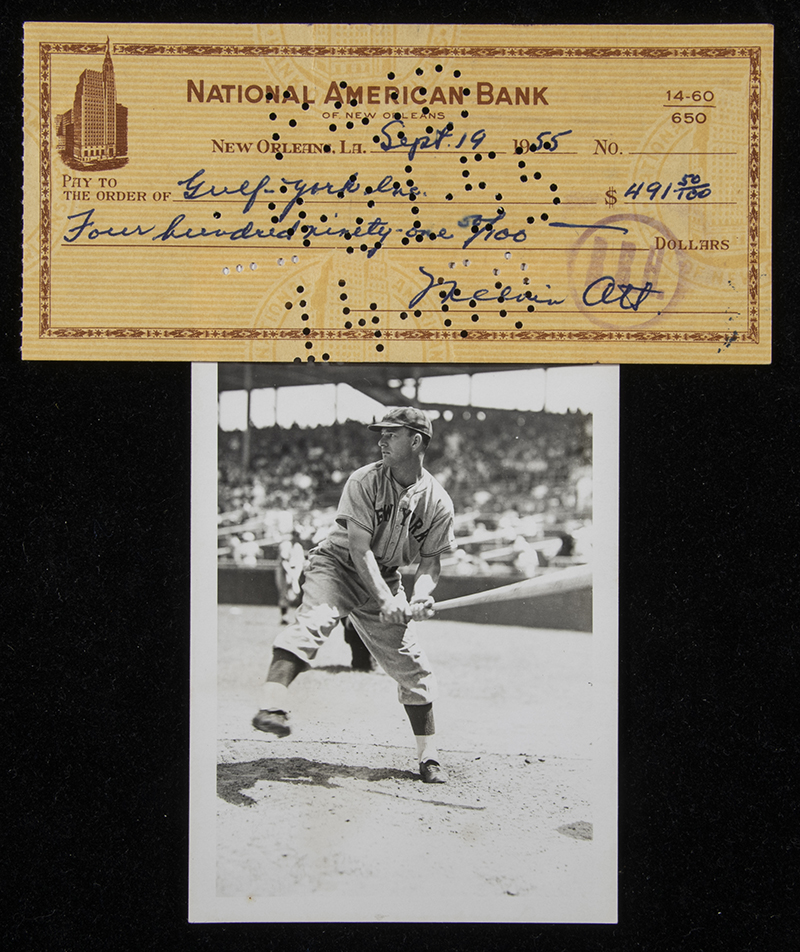 NATIONAL AMERICAN BANK
OF NEW ORLEANS
14-60
650
NEW ORLEANS, LA. Sept. 19 1955 No.
PAY TO
THE ORDER OF Gulf-York Inc. $ 491 50/100
Four hundred ninety-one 50/100 DOLLARS
Melvin Ott
NEW YORK